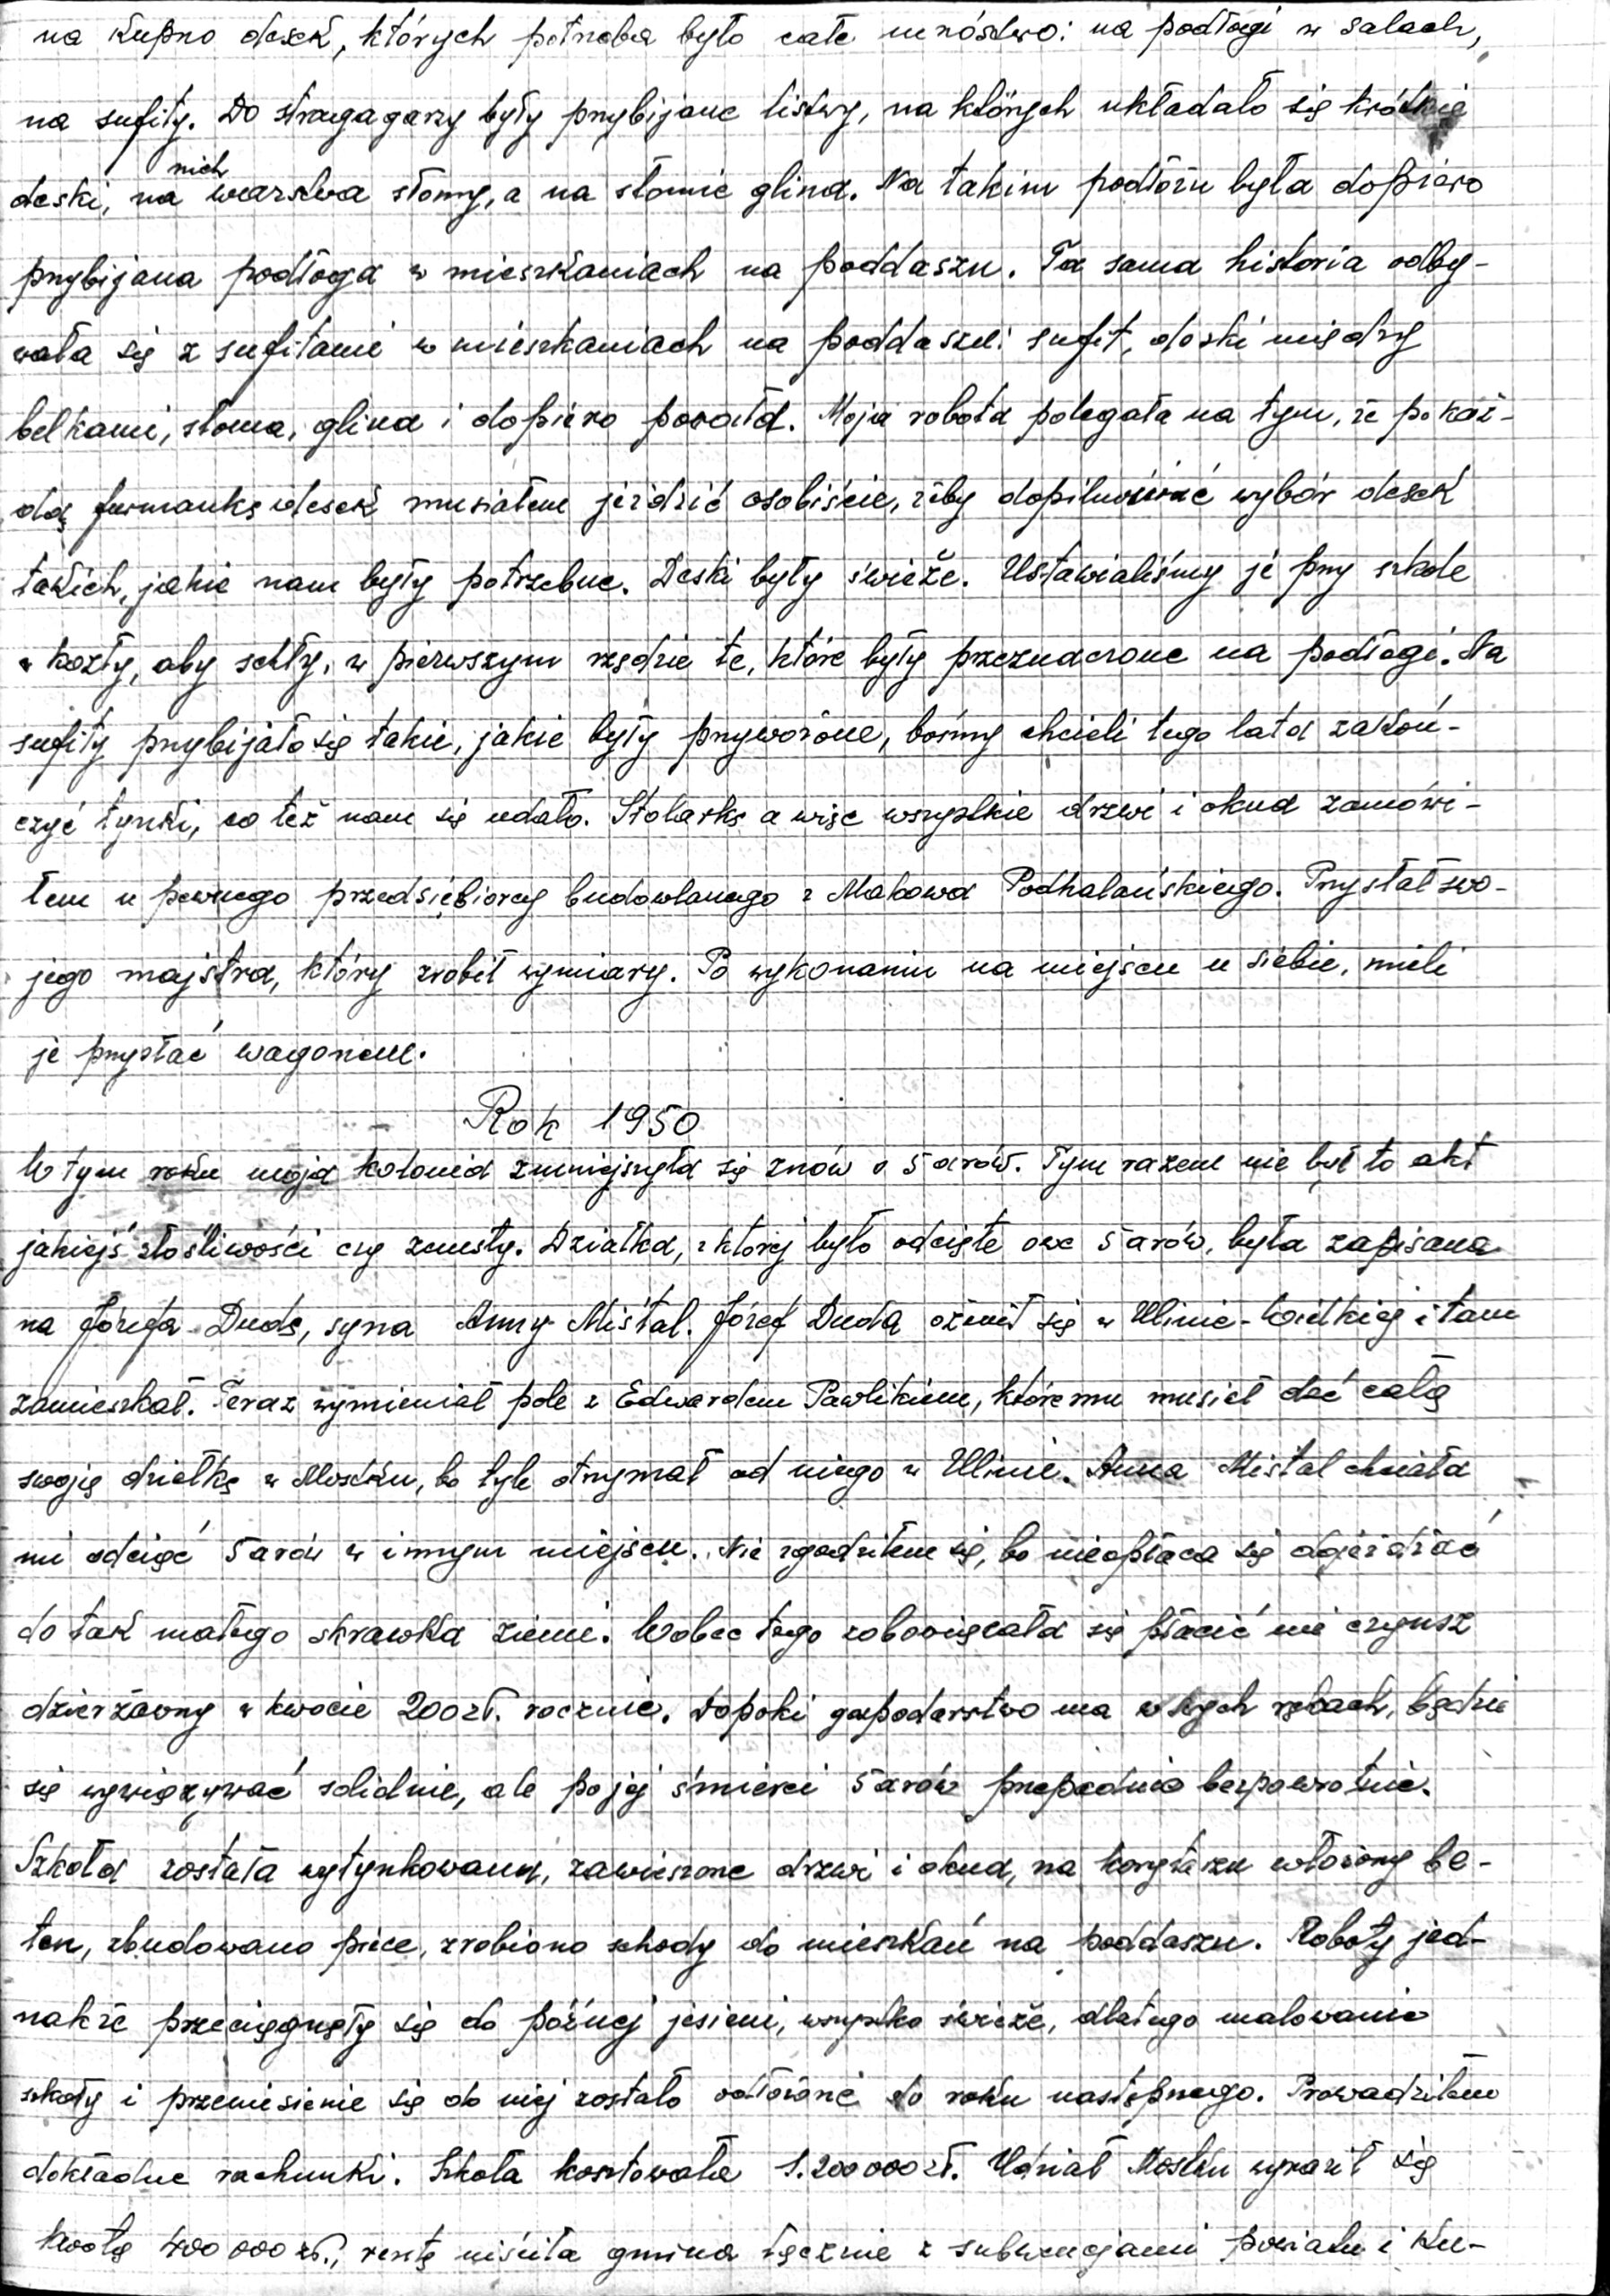 na kupno desek, których potrzeba było całe mnóstwo: na podłogi w salach,
na sufity. Do stragagarzy były przybijane listwy, na których układało się krótkie
deski, na nich warstwa słomy, a na słomie glina. Na takim podłożu była dopiero
przybijana podłoga w mieszkaniach na poddaszu. Ta sama historia odby-
wała się z sufitami w mieszkaniach na poddaszu: sufit, deski między
belkami, słoma, glina i dopiero powała. Moja robota polegała na tym, że po każ-
dą furmankę desek musiałem jeździć osobiście, żeby dopilnować wybór desek
takich, jakie nam były potrzebne. Deski były świeże. Ustawialiśmy je przy szkole
w kozły, aby schły, w pierwszym rzędzie te, które były przeznaczone na podłogi. Na
sufity przybijało się takie, jakie były przywożone, bośmy chcieli tego lata zakoń-
czyć tynki, co też nam się udało. Stolarkę a więc wszystkie drzwi i okna zamówi-
łem u pewnego przedsiębiorcy budowlanego z Makowa Podhalańskiego. Przysłał swo-
jego majstra, który zrobił wymiary. Po wykonaniu na miejscu u siebie, mieli
je przysłać wagonem.
Rok 1950
W tym roku moja kolonia zmniejszyła się znów o 5 arów. Tym razem nie był to akt
jakiejś złośliwości czy zemsty. Działka, z której było odcięte owe 5 arów, była zapisana
na Józefa Dudę, syna Anny Miśtal. Józef Duda ożenił się w Ulinie-Wielkiej i tam
zamieszkał. Teraz wymieniał pole z Edwardem Pawlikiem, któremu musiał dać całą
swoją działkę w Mostku, bo tyle otrzymał od niego w Ulinie. Anna Mistal chciała
mi odciąć 5 arów w innym miejscu. Nie zgodziłem się, bo nieopłaca się dojeżdżać
do tak małego skrawka ziemi. Wobec tego zobowiązała się płacić mi czynsz
dzierżawny w kwocie 200 zł. rocznie. Dopóki gospodarstwo ma w swych rękach, będzie
się wywiązywać solidnie, ale po jej śmierci 5 arów przepadnie bezpowrotnie.
Szkoła została wytynkowana, zawieszone drzwi i okna, na korytarzu włożony be-
ton, zbudowano piece, zrobiono schody do mieszkań na poddaszu. Roboty jed-
nakże przeciągnęły się do późnej jesieni, wszystko świeże, dlatego malowanie
szkoły i przeniesienie się do niej zostało odłożone do roku następnego. Prowadziłem
dokładne rachunki. Szkoła kosztowała 1.200 000 zł. Udział Mostku wyraził się
kwotą 400 000 zł., resztę uiściła gmina łącznie z subwencjami powiatu i Ku-